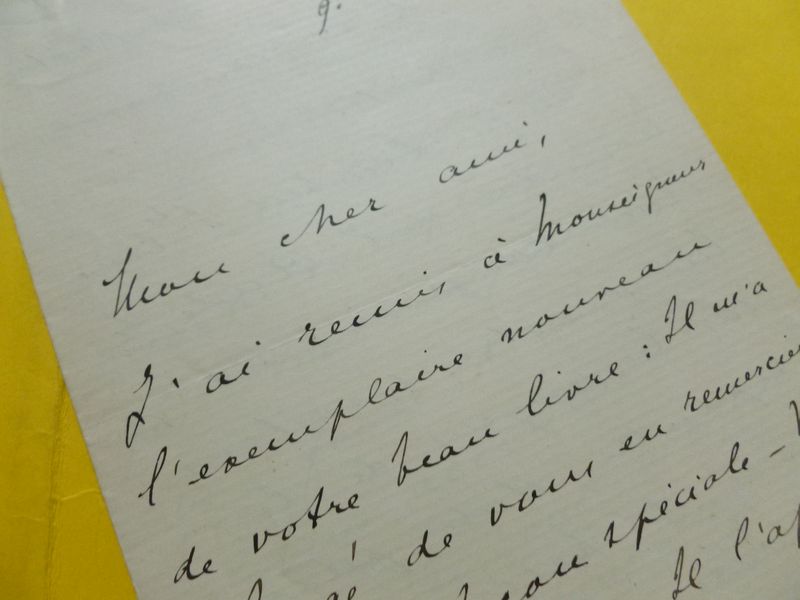 9.
Mon cher ami,
J'ai remis à Monseigneur
l'exemplaire nouveau
de votre beau livre : Il m'a
de vous en remercier
spéciale –
Il l'a